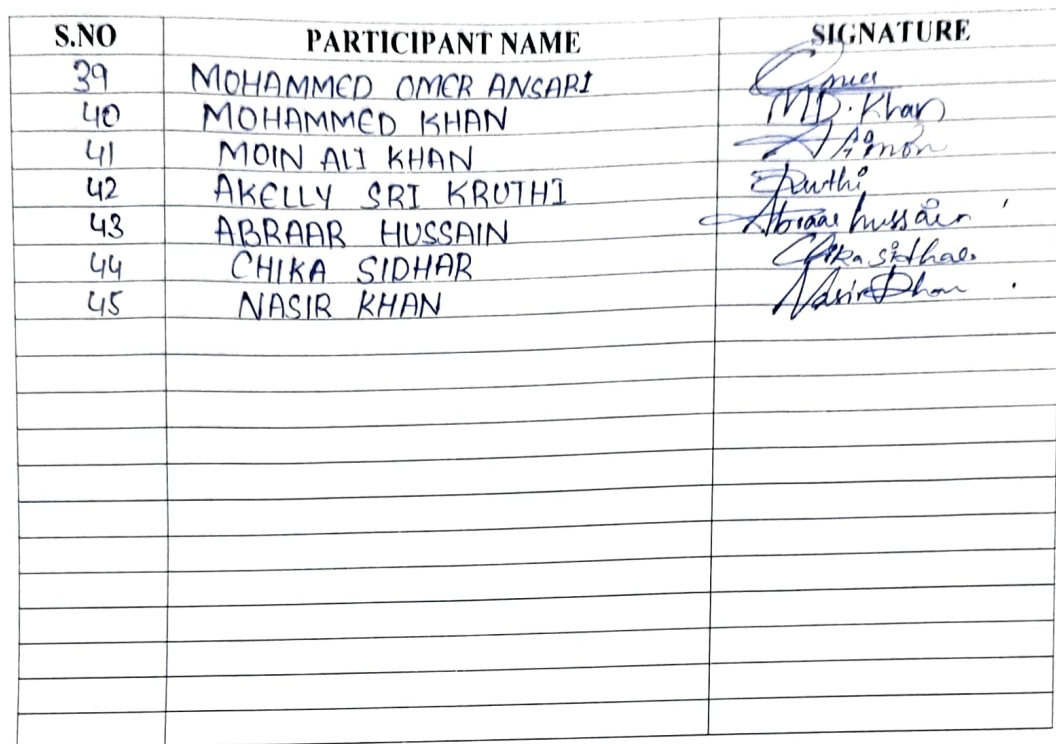 S.NO PARTICIPANT NAME SIGNATURE
39 MOHAMMED OMER ANSARI Omer
40 MOHAMMED KHAN MD. Khan
41 MOIN ALI KHAN
42 AKELLY SRI KRUTHI Kruthi
43 ABRAAR HUSSAIN Abraar hussain
44 CHIKA SIDHAR Chika
45 NASIR KHAN Nasir Khan